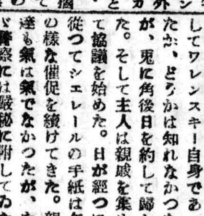 してワレンスキー自身であ
たか、どうかは知れなかつ
が、兎に角後日を約して歸
た。そして主人は親戚を集
て協議を始めた。日が經つ
從つてシエレールの手紙は
の樣な催促を續けてきた。
達も氣は氣でなかつたが、
警察には嚴秘に附して